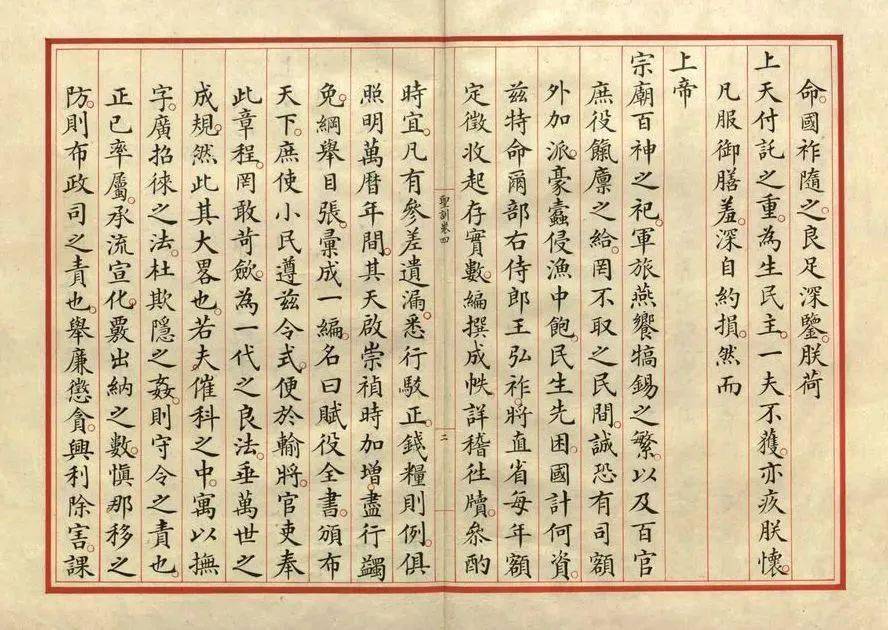 命。國祚隨之。良足深鑒。朕荷
上天付託之重。為生民主。一夫不獲。亦疚朕懷。
凡服御膳羞。深自約損。然而
上帝
宗廟百神之祀。軍旅燕饗犒錫之繁。以及百官
庶役餼廪之給。罔不取之民間。誠恐有司額
外加派。豪蠹侵漁中飽。民生先困。國計何資。
兹特命爾部右侍郎王弘祚。將直省每年額
定徵收起存實數。編撰成帙。詳稽徃牘。叅酌
聖訓卷四
二
時宜。凡有參差遺漏。悉行駁正。錢糧則例。俱
照明萬曆年間。其天啟崇禎時加增。盡行蠲
免。綱舉目張。彚成一編。名曰賦役全書。頒布
天下。庶使小民遵兹令式。便於輸將。官吏奉
此章程。罔敢苛斂。為一代之良法。垂萬世之
成規。然此其大畧也。若夫催科之中。寓以撫
字。廣招徠之法。杜欺隱之姦。則守令之責也。
正己率屬。承流宣化。覈出納之數。慎那移之
防。則布政司之責也。舉廉懲貪。興利除害。課